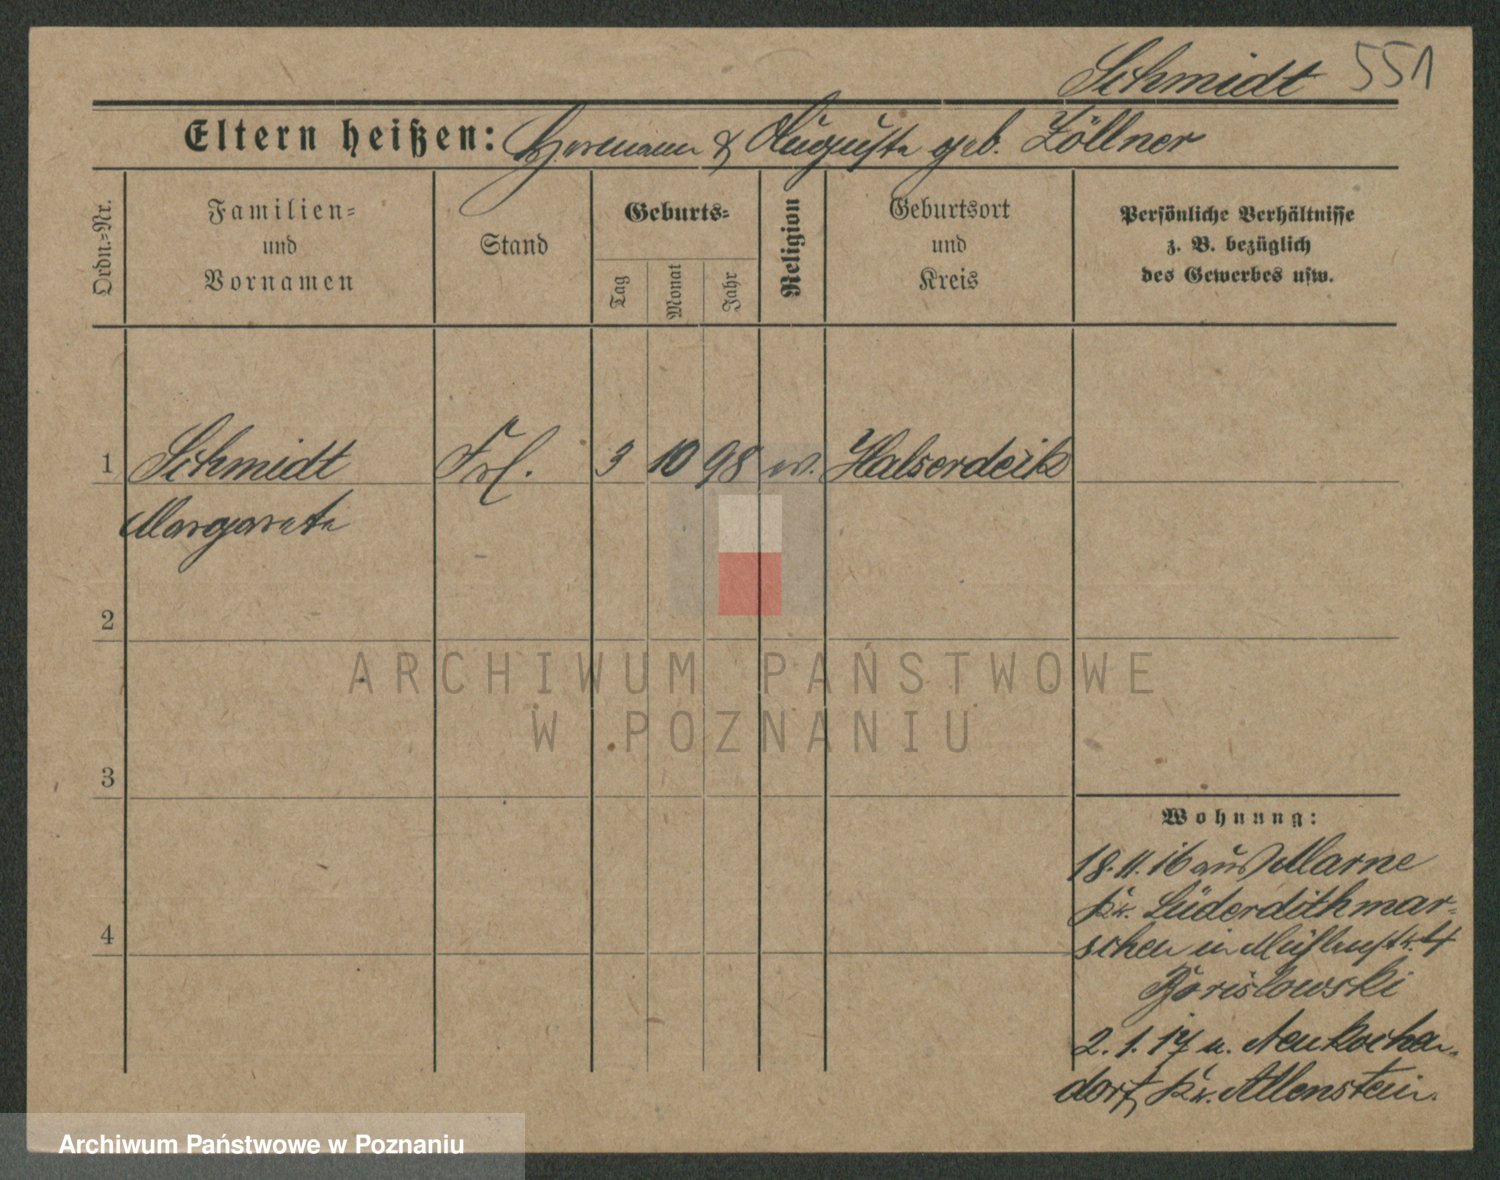 Schmidt 551
Eltern heißen: Hermann & Auguste geb. Zöllner
Ordn.-Nr.
Familien-
und
Vornamen
Stand
Geburts-
Tag
Monat
Jahr
Religion
Geburtsort
und
Kreis
Persönliche Verhältnisse
z. B. bezüglich
des Gewerbes usw.
1 Schmidt Frl. 3 10 98 ev. Halserdeik
Margarete
2
3
4
Wohnung:
18.11.16 aus Marne
Kr. Süderdithmar-
schen in 4
2.1.17 n.
dorf, Kr. Allenstein.
ARCHIWUM PAŃSTWOWE
W POZNANIU
Archiwum Państwowe w Poznaniu